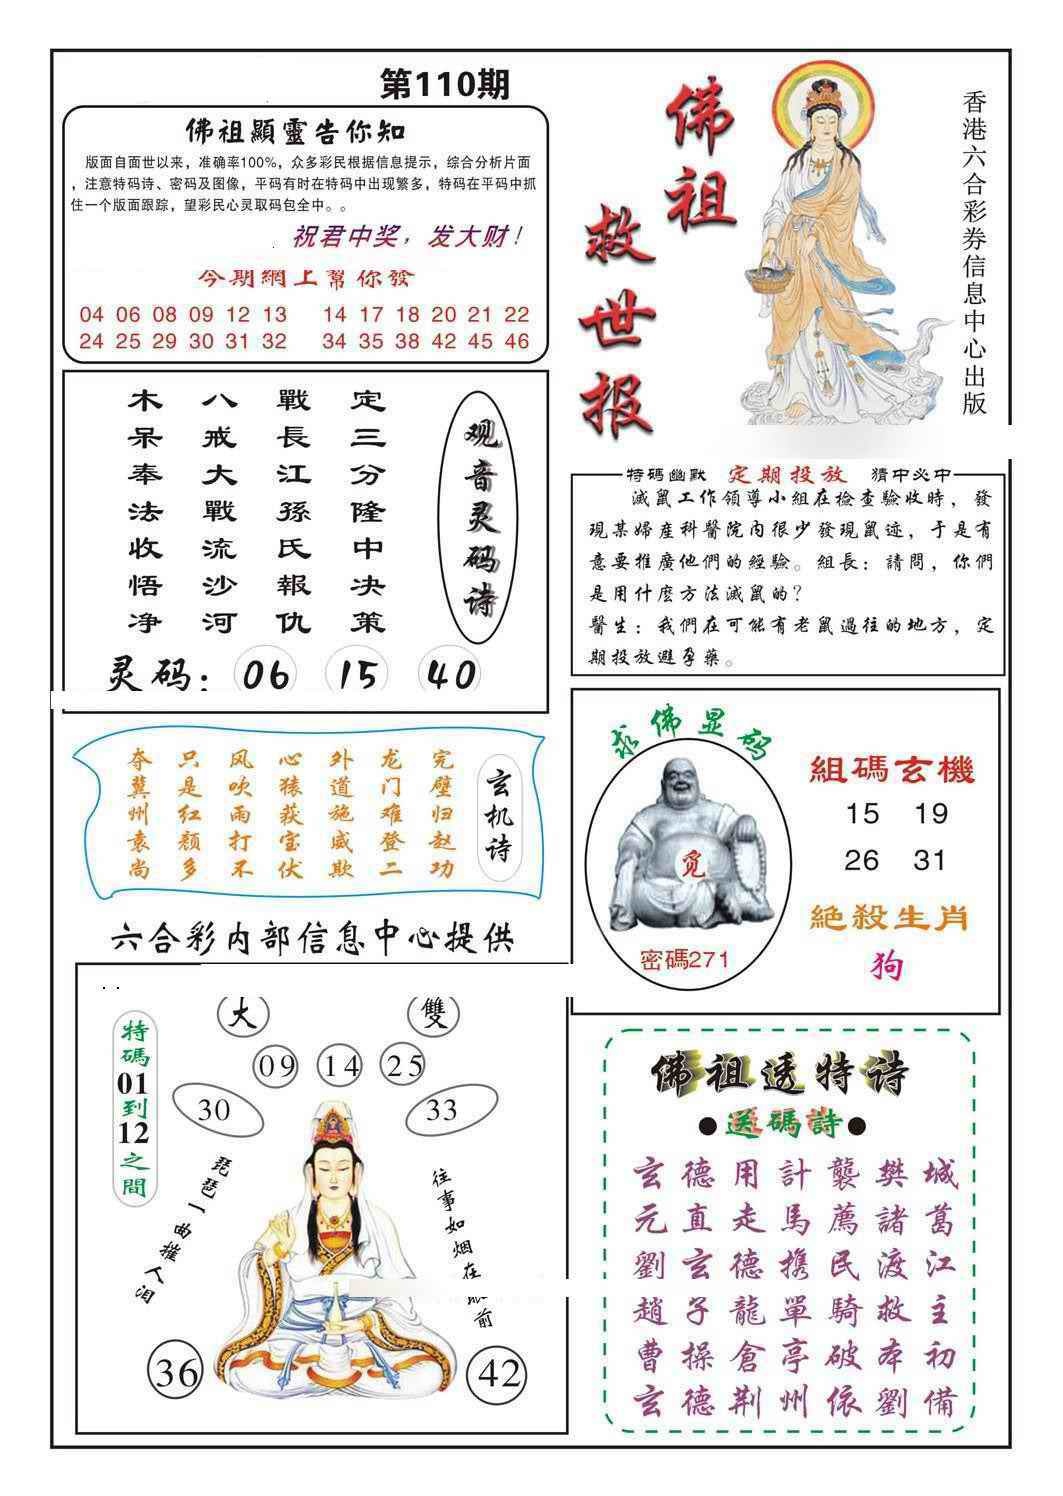 第110期
佛祖顯靈告你知
版面自面世以来，准确率100%，众多彩民根据信息提示，综合分析片面
，注意特码诗、密码及图像，平码有时在特码中出现繁多，特码在平码中抓
住一个版面跟踪，望彩民心灵取码包全中。。
祝君中奖，发大财！
今期網上幫你發
04 06 08 09 12 13 14 17 18 20 21 22
24 25 29 30 31 32 34 35 38 42 45 46
佛祖
救世报
香港六合彩券信息中心出版
观音灵码诗
定三分隆中决策
戰長江孫氏報仇
八戒大戰流沙河
木呆奉法收悟净
灵码：06 15 40
特碼幽默 定期投放 猜中必中
滅鼠工作領導小組在檢查驗收時，發
現某婦産科醫院內很少發現鼠迹，于是有
意要推廣他們的經驗。組長：請問，你們
是用什麽方法滅鼠的？
醫生：我們在可能有老鼠過往的地方，定
期投放避孕藥。
玄机诗
完璧归赵功
龙门难登二
外道施威欺
心猿获宝伏
风吹雨打不
只是红颜多
夺冀州袁尚
求佛显码
觅
密碼271
組碼玄機
15 19
26 31
絕殺生肖
狗
六合彩内部信息中心提供
特碼01到12之間
大 雙
09 14 25
30 33
琵琶一曲摧人泪
往事如烟在眼前
36 42
佛祖透特诗
●送碼詩●
玄德用計襲樊城
元直走馬薦諸葛
劉玄德携民渡江
趙子龍單騎救主
曹操倉亭破本初
玄德荆州依劉備